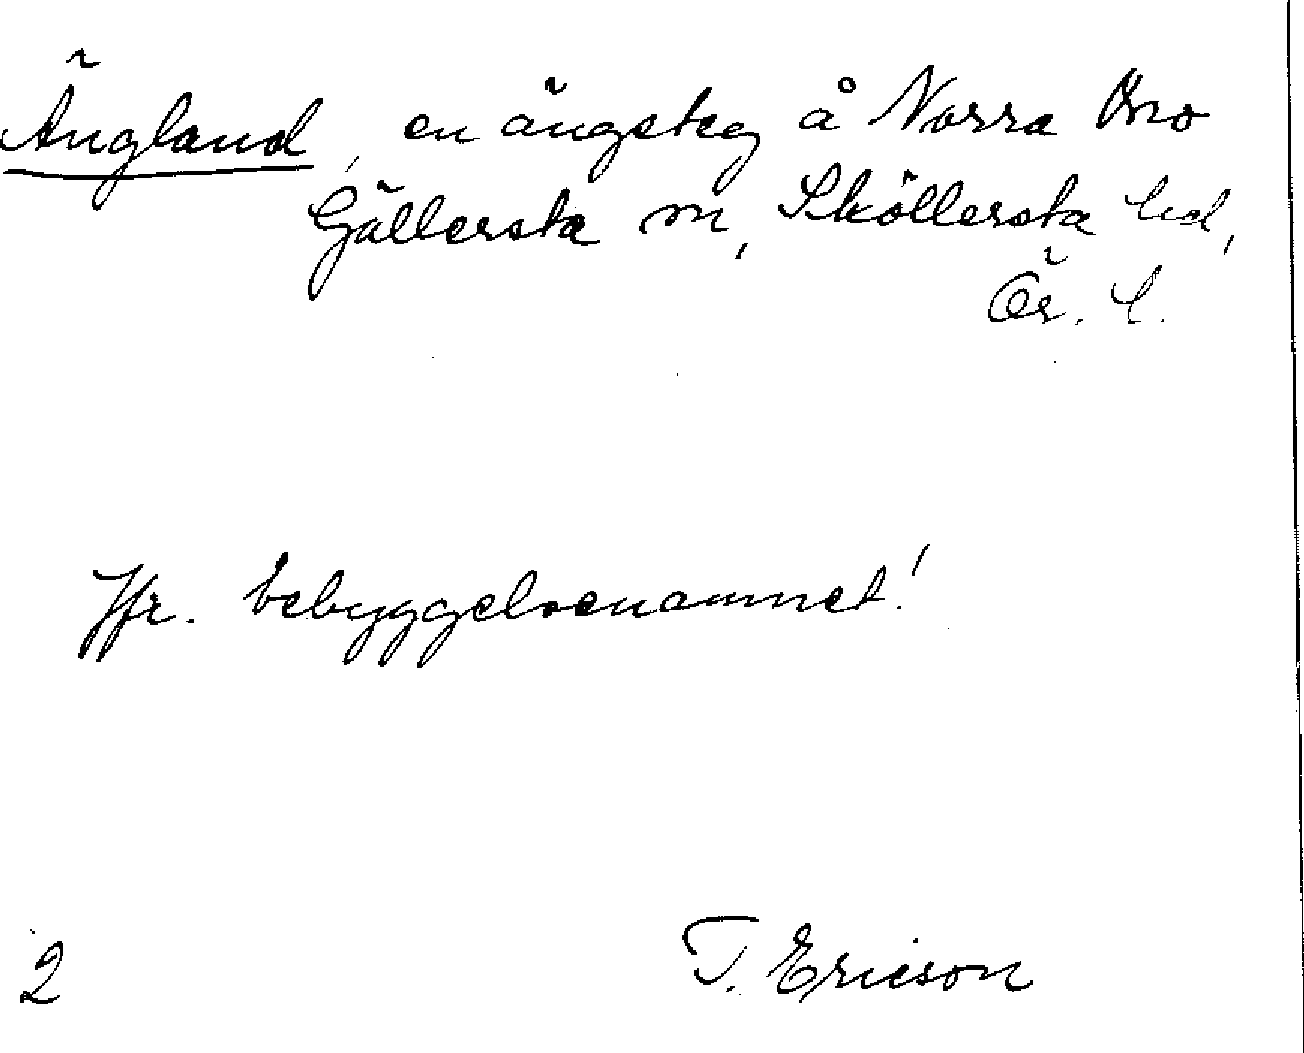 Ängland, en ängsteg å Norra Bro
Gällersta sn, Sköllersta hd,
Ör. l.
Jfr. bebyggelsenamnet!
2
T. Ericson